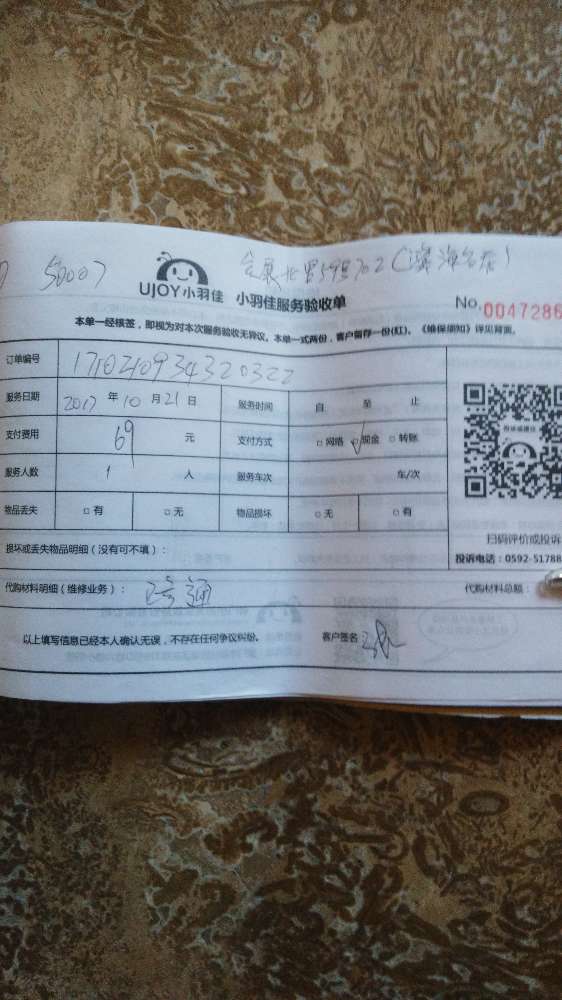 50007 会展北里59号702(滨海名居)
UJOY小羽佳 小羽佳服务验收单
No.0047286
本单一经核签，即视为对本次服务验收无异议。本单一式两份，客户留存一份(红)。《维保须知》详见背面。
订单编号 1710210934320322
服务日期 2017 年 10 月 21 日 服务时间 自 至 止
支付费用 69 元 支付方式 □网络 ☑现金 □转账
服务人数 1 人 服务车次 车/次
物品丢失 □有 □无 物品损坏 □无 □有
扫码评价或投诉
损坏或丢失物品明细（没有可不填）：
投诉电话：0592-51788
代购材料明细（维修业务）： 疏通 代购材料总额：
以上填写信息已经本人确认无误，不存在任何争议纠纷。 客户签名